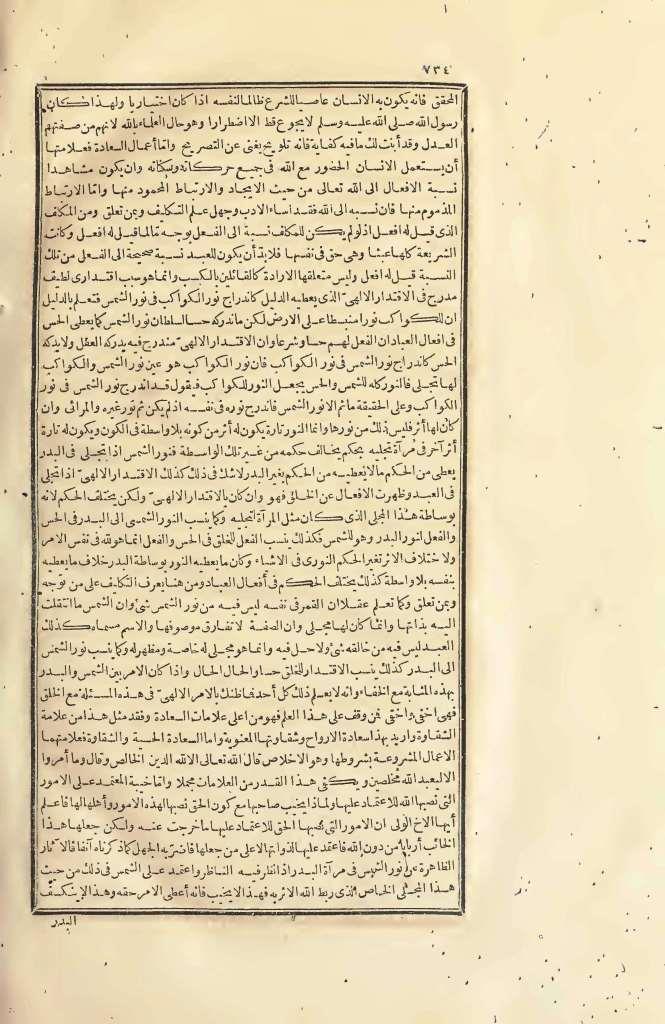 ٧٣٤
المحقق فانه يكون به الانسان عاصيا للشرع ظالما لنفسه اذا كان اختياريا ولهذا كان
رسول الله صلى الله عليه وسلم لا يجوع قط الا اضطرارا وهو حال العلماء بالله لانهم من صفتهم
العدل وقد أبنت لك ما فيه كفاية فانه تلويح يغنى عن التصريح واما أعمال السعادة فعلامتها
أن يستعمل الانسان الحضور مع الله فى جميع حركاته وسكناته وان يكون مشاهدا
نسبة الافعال الى الله تعالى من حيث الايجاد والارتباط المحمود منها واما الارتباط
المذموم منها فان نسبه الى الله فقد أساء الادب وجهل علم التكليف وبمن تعلق ومن المكلف
الذى قيل له افعل اذ لو لم يكن للمكلف نسبة الى الفعل بوجه ما لما قيل له افعل وكانت
الشريعة كلها عبثا وهى حق فى نفسها فلابد أن يكون للعبد نسبة صحيحة الى الفعل من تلك
النسبة قيل له افعل وليس متعلقها الارادة كالقائلين بالكسب وانما هو سبب اقتدارى لطيف
مدرج فى الاقتدار الالهى الذى يعطيه الدليل كاندراج نور الكواكب فى نور الشمس فتعلم بالدليل
ان للكواكب نورا منبسطا على الارض لكن ما ندركه حسا لسلطان نور الشمس كما يعطى الحس
فى افعال العباد ان الفعل لهم حسا وشرعا وان الاقتدار الالهى مندرج فيه يدركه العقل ولا يدركه
الحس كاندراج نور الشمس فى نور الكواكب فان نور الكواكب هو عين نور الشمس والكواكب
لها مجلى فالنور كله للشمس والحس يجعل النور للكواكب فيقول قد اندرج نور الشمس فى نور
الكواكب وعلى الحقيقة ما ثم الا نور الشمس فاندرج نوره فى نفسه اذ لم يكن ثم نور غيره والمرائى وان
كان لها أثر فليس ذلك من نورها وانما النور تارة يكون له أثر من كونه بلا واسطة فى الكون ويكون له تارة
أثر آخر فى مرآة تجليه بحكم يخالف حكمه من غير تلك الواسطة فنور الشمس اذا تجلى فى البدر
يعطى من الحكم ما لا يعطيه من الحكم بغير البدر لاشك فى ذلك كذلك الاقتدار الالهى اذا تجلى
فى العبد وظهرت الافعال عن الخلق فهو وان كان بالاقتدار الالهى ولكن يختلف الحكم لانه
بوساطة هذا المجلى الذى كان مثل المرآة لتجليه وكما ينسب النور الشمسى الى البدر فى الحس
والفعل لنور البدر وهو للشمس فكذلك ينسب الفعل للخلق فى الحس والفعل انما هو لله فى نفس الامر
ولاختلاف الاثر تغير الحكم النورى فى الاشياء وكان ما يعطيه النور بوساطة البدر خلاف ما يعطيه
بنفسه بلا واسطة كذلك يختلف الحكم فى أفعال العباد ومن هنا يعرف التكليف على من توجه
وبمن تعلق وكما تعلم عقلا ان القمر فى نفسه ليس فيه من نور الشمس شئ وان الشمس ما انتقلت
اليه بذاتها وانما كان لها مجلى وان الصفة لا تفارق موصوفها والاسم مسماه كذلك
العبد ليس فيه من خالقه شئ ولا حل فيه وانما هو مجلى له خاصة ومظهر له وكما ينسب نور الشمس
الى البدر كذلك ينسب الاقتدار للخلق حسا والحال الحال واذا كان الامر بين الشمس والبدر
بهذه المثابة مع الخفاء وانه لا يعلم ذلك كل أحد فما ظنك بالامر الالهى فى هذه المسئلة مع الخلق
فهى اخفى واخفى فمن وقف على هذا العلم فهو من اعلى علامات السعادة وفقد مثل هذا من علامة
الشقاوة واريد بهذا سعادة الارواح وشقاوتها المعنوية واما السعادة الحسية والشقاوة فعلامتهما
الاعمال المشروعة بشروطها وهو الاخلاص قال الله تعالى الا لله الدين الخالص وقال وما أمروا
الا ليعبدوا الله مخلصين ويكفى هذا القدر من العلامات مجملا واما خيبة المعتمد على الامور
التى نصبها الله للاعتماد عليها ولماذا يخيب صاحبها مع كون الحق نصبها لهذه الامور وأهلها لها فاعلم
أيها الاخ الولى ان الامور التى نصبها الحق للاعتماد عليها ما خرجت عنه ولكن جعلها هذا
الخائب أربابا من دون الله فاعتمد عليها لذواتها لا على من جعلها فاضر به الجهل كما ذكرناه آنفا فالآثار
الظاهرة على نور الشمس فى مرآة البدر اذا نظر فيه الناظر واعتمد على الشمس فى ذلك من حيث
هذا المجلى الخاص الذى ربط الله الاثر به فهذا لا يخيب فانه أعطى الامر حقه وهذا لا ينكسف
البدر